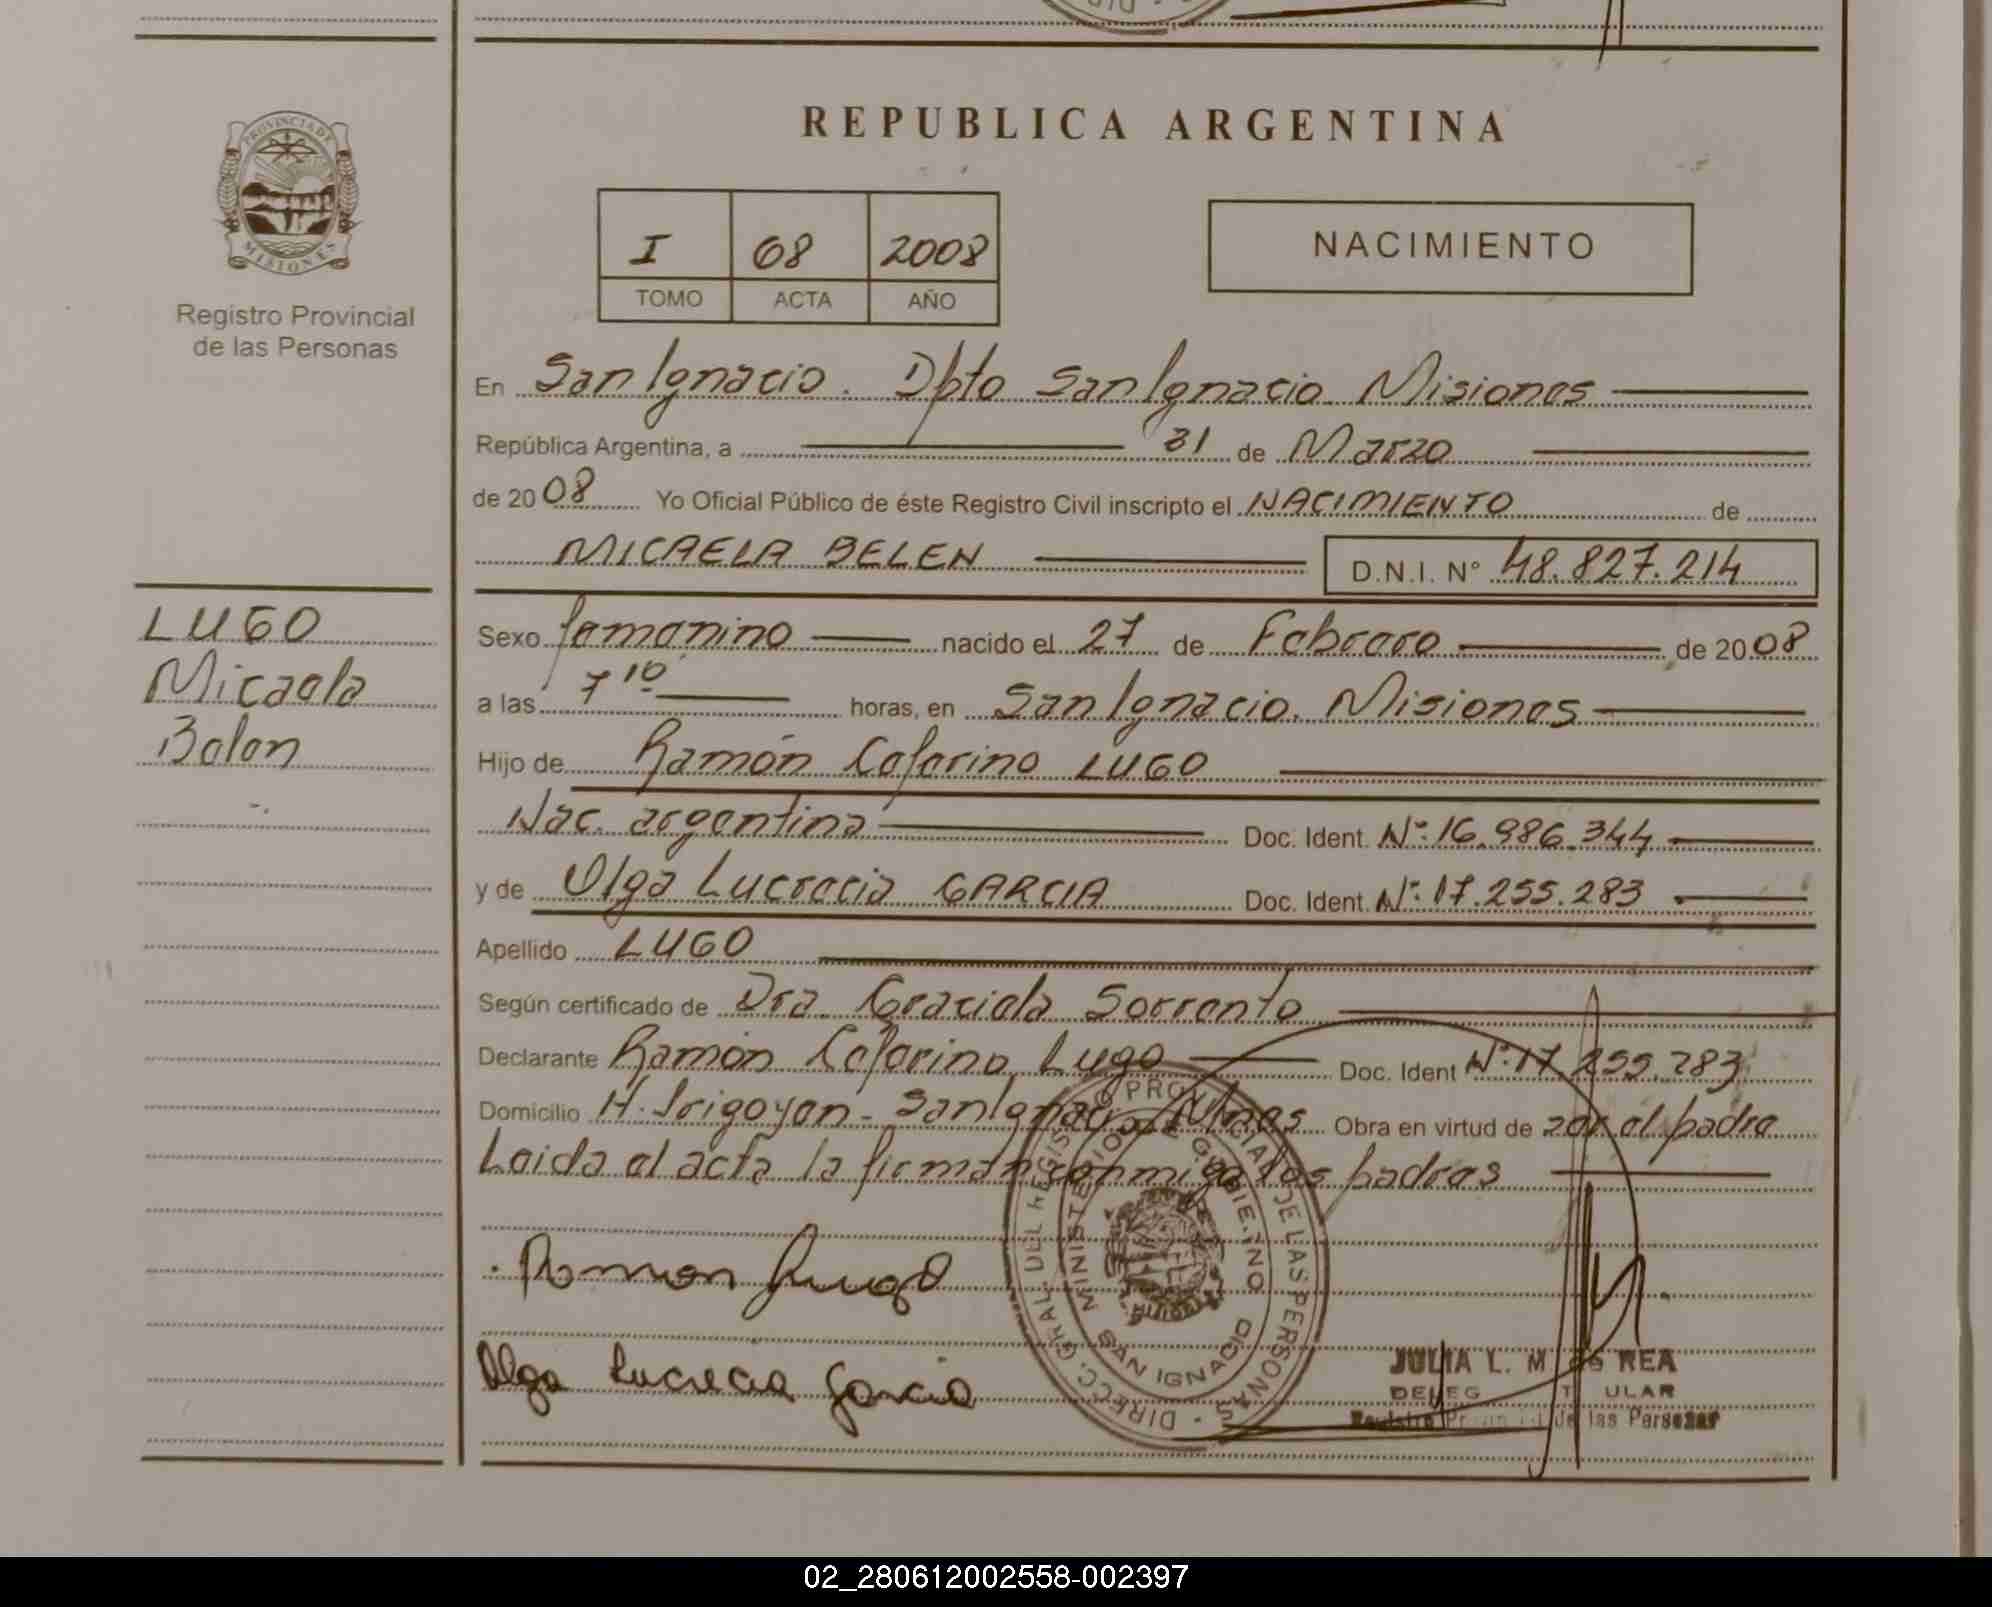 REPUBLICA ARGENTINA
PROVINCIA DE
MISIONES
Registro Provincial
de las Personas
I 68 2008
TOMO ACTA AÑO
NACIMIENTO
En San Ignacio. Dpto San Ignacio. Misiones
República Argentina, a 31 de Marzo
de 2008 Yo Oficial Público de éste Registro Civil inscripto el NACIMIENTO de
MICAELA BELEN D.N.I. N° 48.827.214
LUGO
Micaela
Belen
Sexo femenino nacido el 27 de Febrero de 2008
a las 7 10 horas, en San Ignacio. Misiones
Hijo de Ramón Ceferino LUGO
Nac. argentina Doc. Ident. N°: 16.986.344
y de Olga Lucrecia GARCIA Doc. Ident. N°: 17.255.283
Apellido LUGO
Según certificado de Dra. Graciela Sorrento
Declarante Ramón Ceferino Lugo Doc. Ident N°: 17.255.283
Domicilio H. Irigoyen - San Ignacio Mnes Obra en virtud de ser el padre
Leida el acta la firman conmigo los padres
Ramon Lugo
Olga Lucrecia Garcia
DIRECC. GRAL. DEL REGISTRO PROVINCIAL DE LAS PERSONAS
MINISTERIO DE GOBIERNO
SAN IGNACIO
JULIA L. M de REA
DELEG TULAR
Registro Provincial de las Personas
02_280612002558-002397